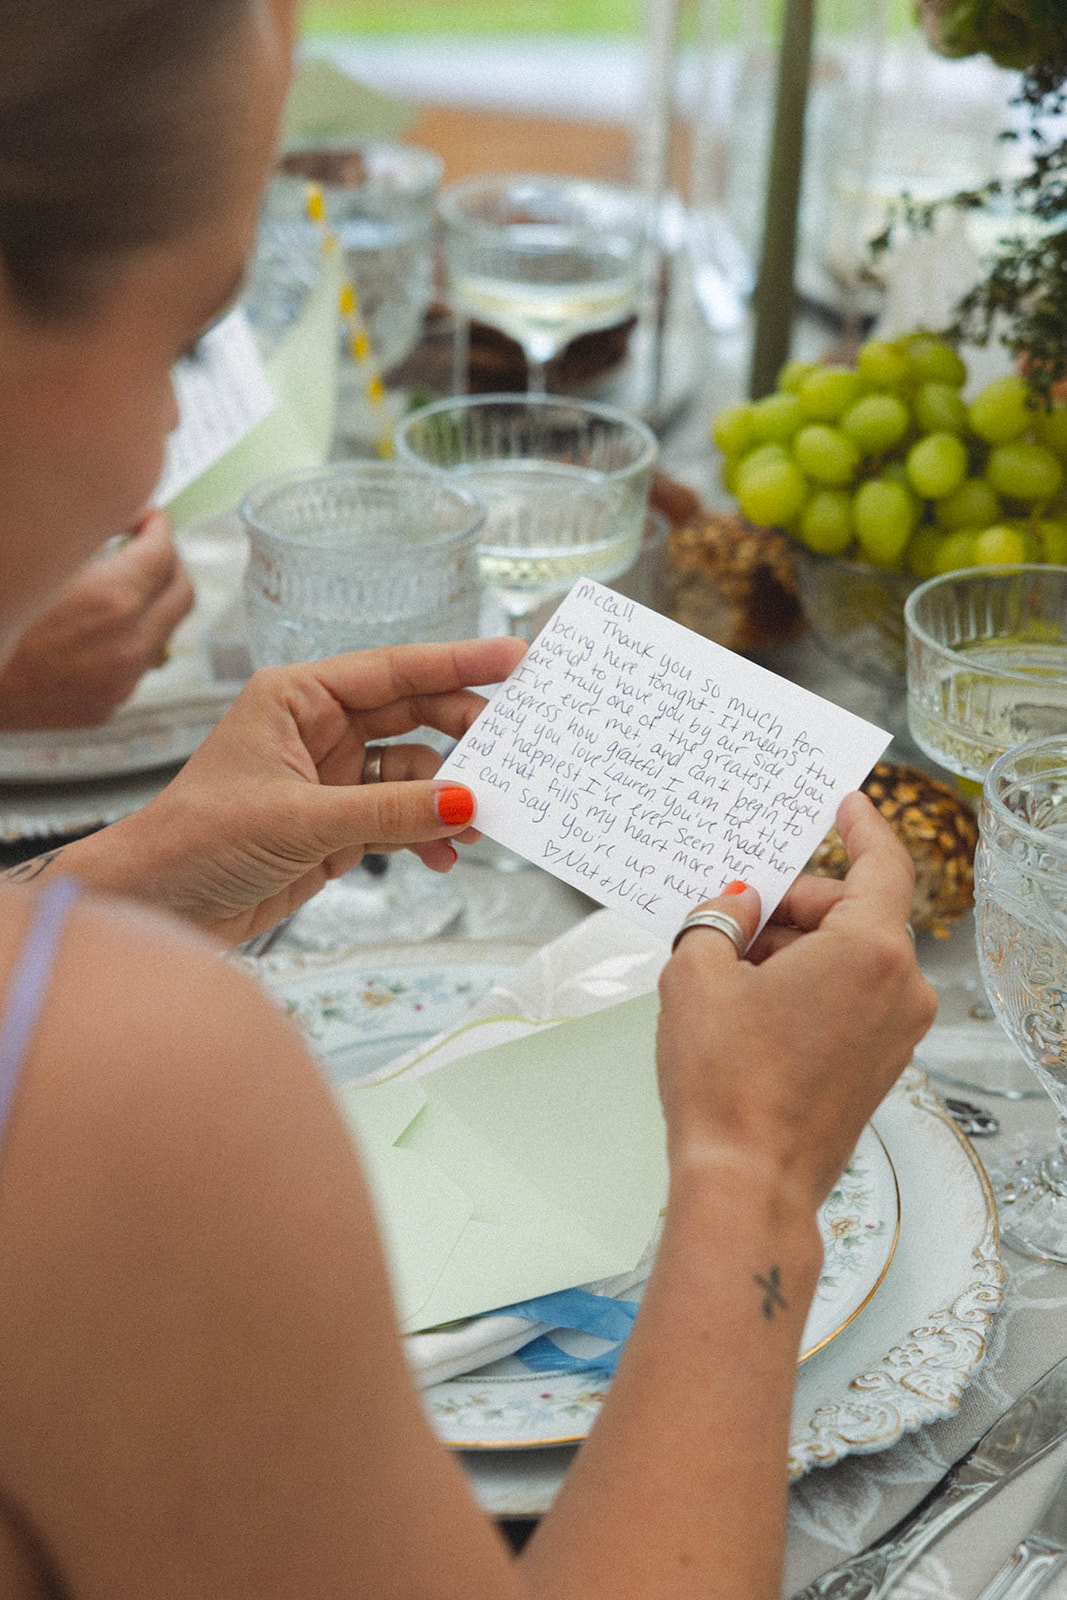 McCall,
Thank you so much for
being here tonight. It means the
world to have you by our side. You
are truly one of the greatest people
I've ever met, and can't begin to
express how grateful I am for the
way you love Lauren. You've made her
the happiest I've ever seen her,
and that fills my heart more
I can say. You're up next
♡ Nat + Nick